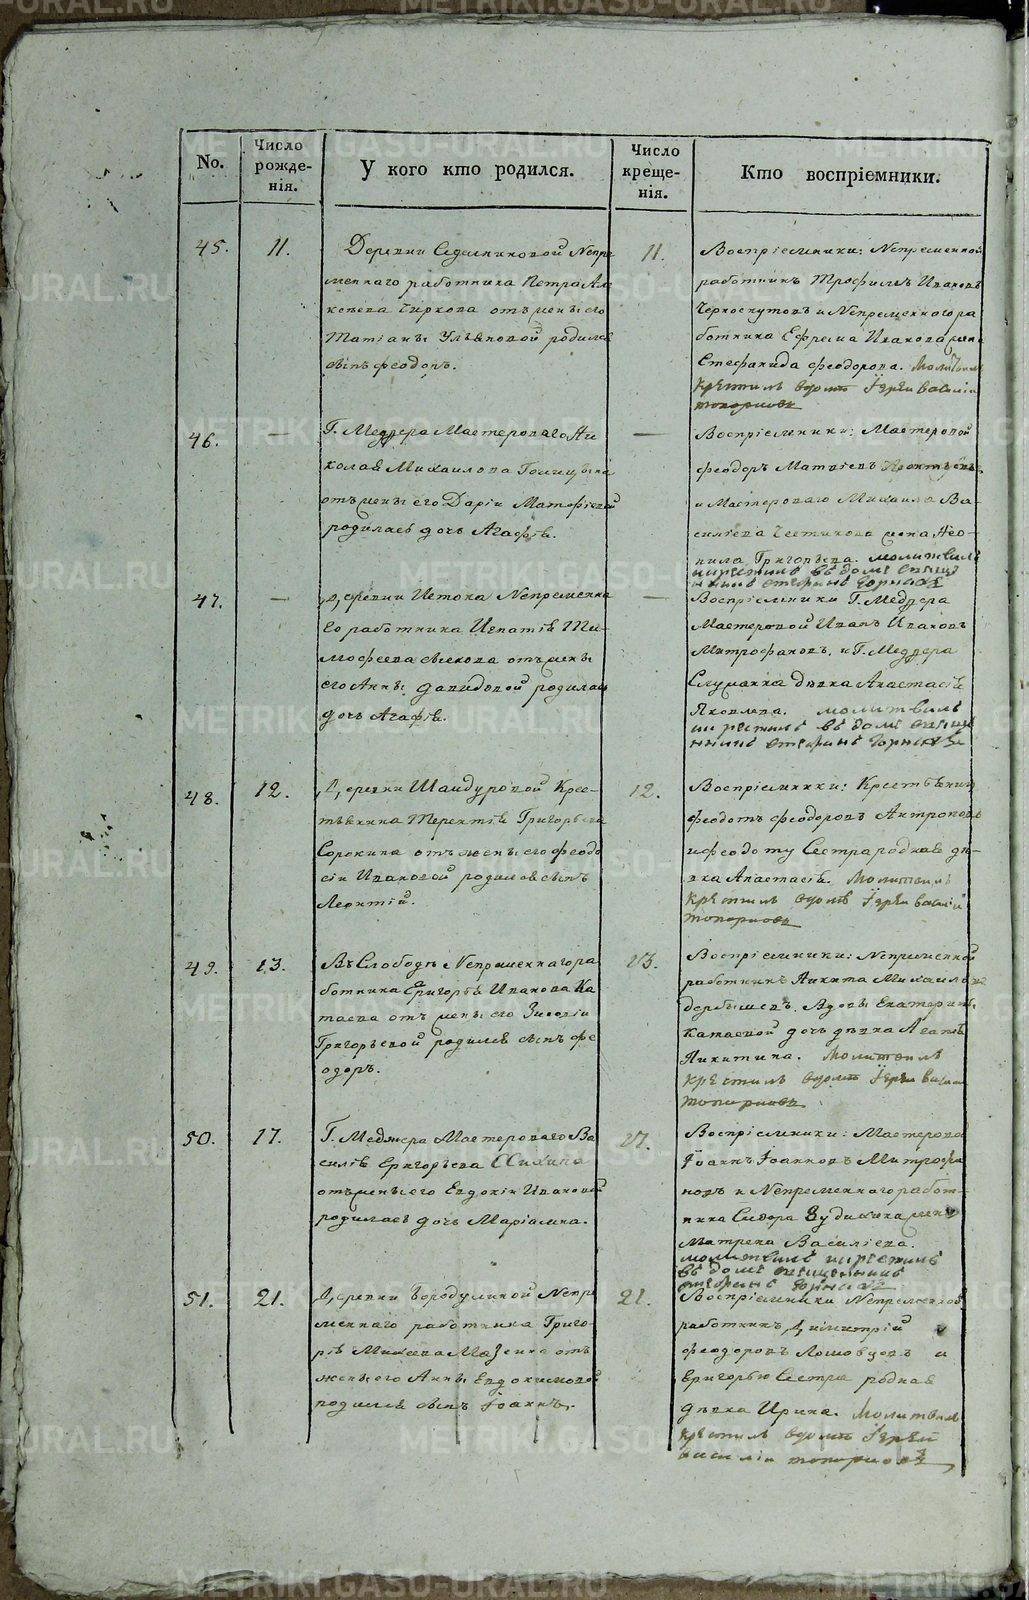 No.
Число рожде-нія.
У кого кто родился.
Число креще-нія.
Кто воспріемники.
45.
11.
Деревни Седельниковой Непре
меннаго работника Петра Ал
ексѣева Чиркова отъ жены его
Татіаны Ульяновой родился
сынъ Феодоръ.
11.
Воспріемники: Непременной
работникъ Трофимъ Ивановъ
Черноскутовъ и Непременнаго ра
ботника Ефрема Иванова жена
Стефанида Феодорова. Молитвилъ
крестилъ Іерей Василій
Топорковъ
46.
—
Г. Меджера Мастероваго Ни
колая Михаилова Голицына
отъ жены его Даріи Матфіевой
родилась дочь Агафія.
—
Воспріемники: Мастеровой
Феодоръ Матвіевъ
и Мастероваго Михаила Ва-
силіева жена Нео-
нила Григорьева. молитвилъ
и крестилъ въ домѣ свяще
нникъ
47.
—
Деревни Истока Непременна
го работника Игнатія Ти-
мофеева отъ жены
его Анны Давидовой родилась
дочь Агафія.
—
Воспріемники Г. Меджера
Мастеровой Иванъ Ивановъ
Митрофановъ, и Г. Меджера
Служанка дѣвка Анастасія
Яковлева. молитвилъ
и крестилъ въ домѣ свяще
нникъ
48.
12.
Деревни Шайдуровой Крес-
тьянина Терентія Григорьева
Сорокина отъ жены его Феодо
сіи Ивановой родился сынъ
Леонтій.
12.
Воспріемники: Крестьянинъ
Феодотъ Феодоровъ Антроповъ
и Феодоту Сестра родная дѣ-
вка Анастасія. Молитвилъ
крестилъ Іерей Василій
Топорковъ
49.
13.
Въ Слободѣ Непременнаго ра
ботника Григорья Иванова Ка
таева отъ жены его Зиновіи
Григорьевой родился сынъ Фе
одоръ.
13.
Воспріемники: Непременной
работникъ Никита Михаиловъ
Дербышевъ. Вдовы Екатерины
Катаевой дочь дѣвка Агафія
Никитина. Молитвилъ
крестилъ Іерей Василій
Топорковъ
50.
17.
Г. Меджера Мастероваго Ва
силія Григорьева
отъ жены его Евдокіи Ивановой
родилась дочь Маріамна.
17.
Воспріемники: Мастеровой
Іоаннъ Іоанновъ Митрофа
новъ и Непременнаго работ-
ника Сидора Зудихина жена
Матрена Василіева.
молитвилъ и крестилъ
въ домѣ священникъ
51.
21.
Деревни Бородулиной Непре
меннаго работника Григо-
рія Михеева отъ
жены его Анны Евдокимовой
родился сынъ Іоаннъ.
21.
Воспріемники Непременной
работникъ Димитрій
Феодоровъ Ломовцовъ и
Григорью Сестра родная
дѣвка Ирина. Молитвилъ
крестилъ Іерей
Василій Топорковъ
METRIKI.GASO-URAL.RU